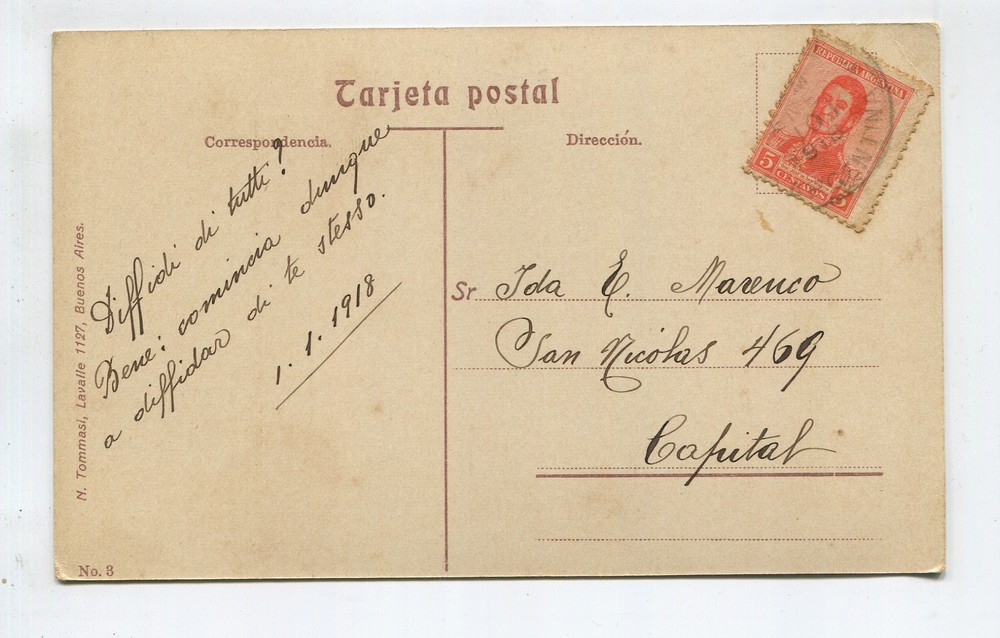 Tarjeta postal
Correspondencia.
Dirección.
Diffidi di tutti?
Bene: comincia dunque
a diffidar di te stesso.
1. 1. 1918
Sr Ida E. Marenco
San Nicolas 469
Capital
N. Tommasi, Lavalle 1127, Buenos Aires.
No. 3
REPUBLICA ARGENTINA
5 CENTAVOS 5